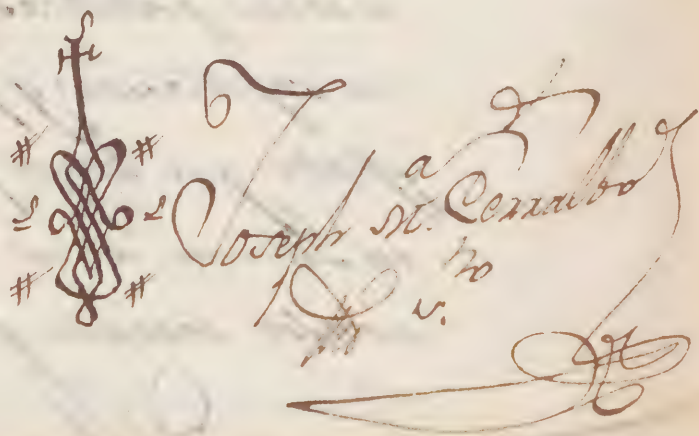 Joseph M.a Cerralbo
S.no